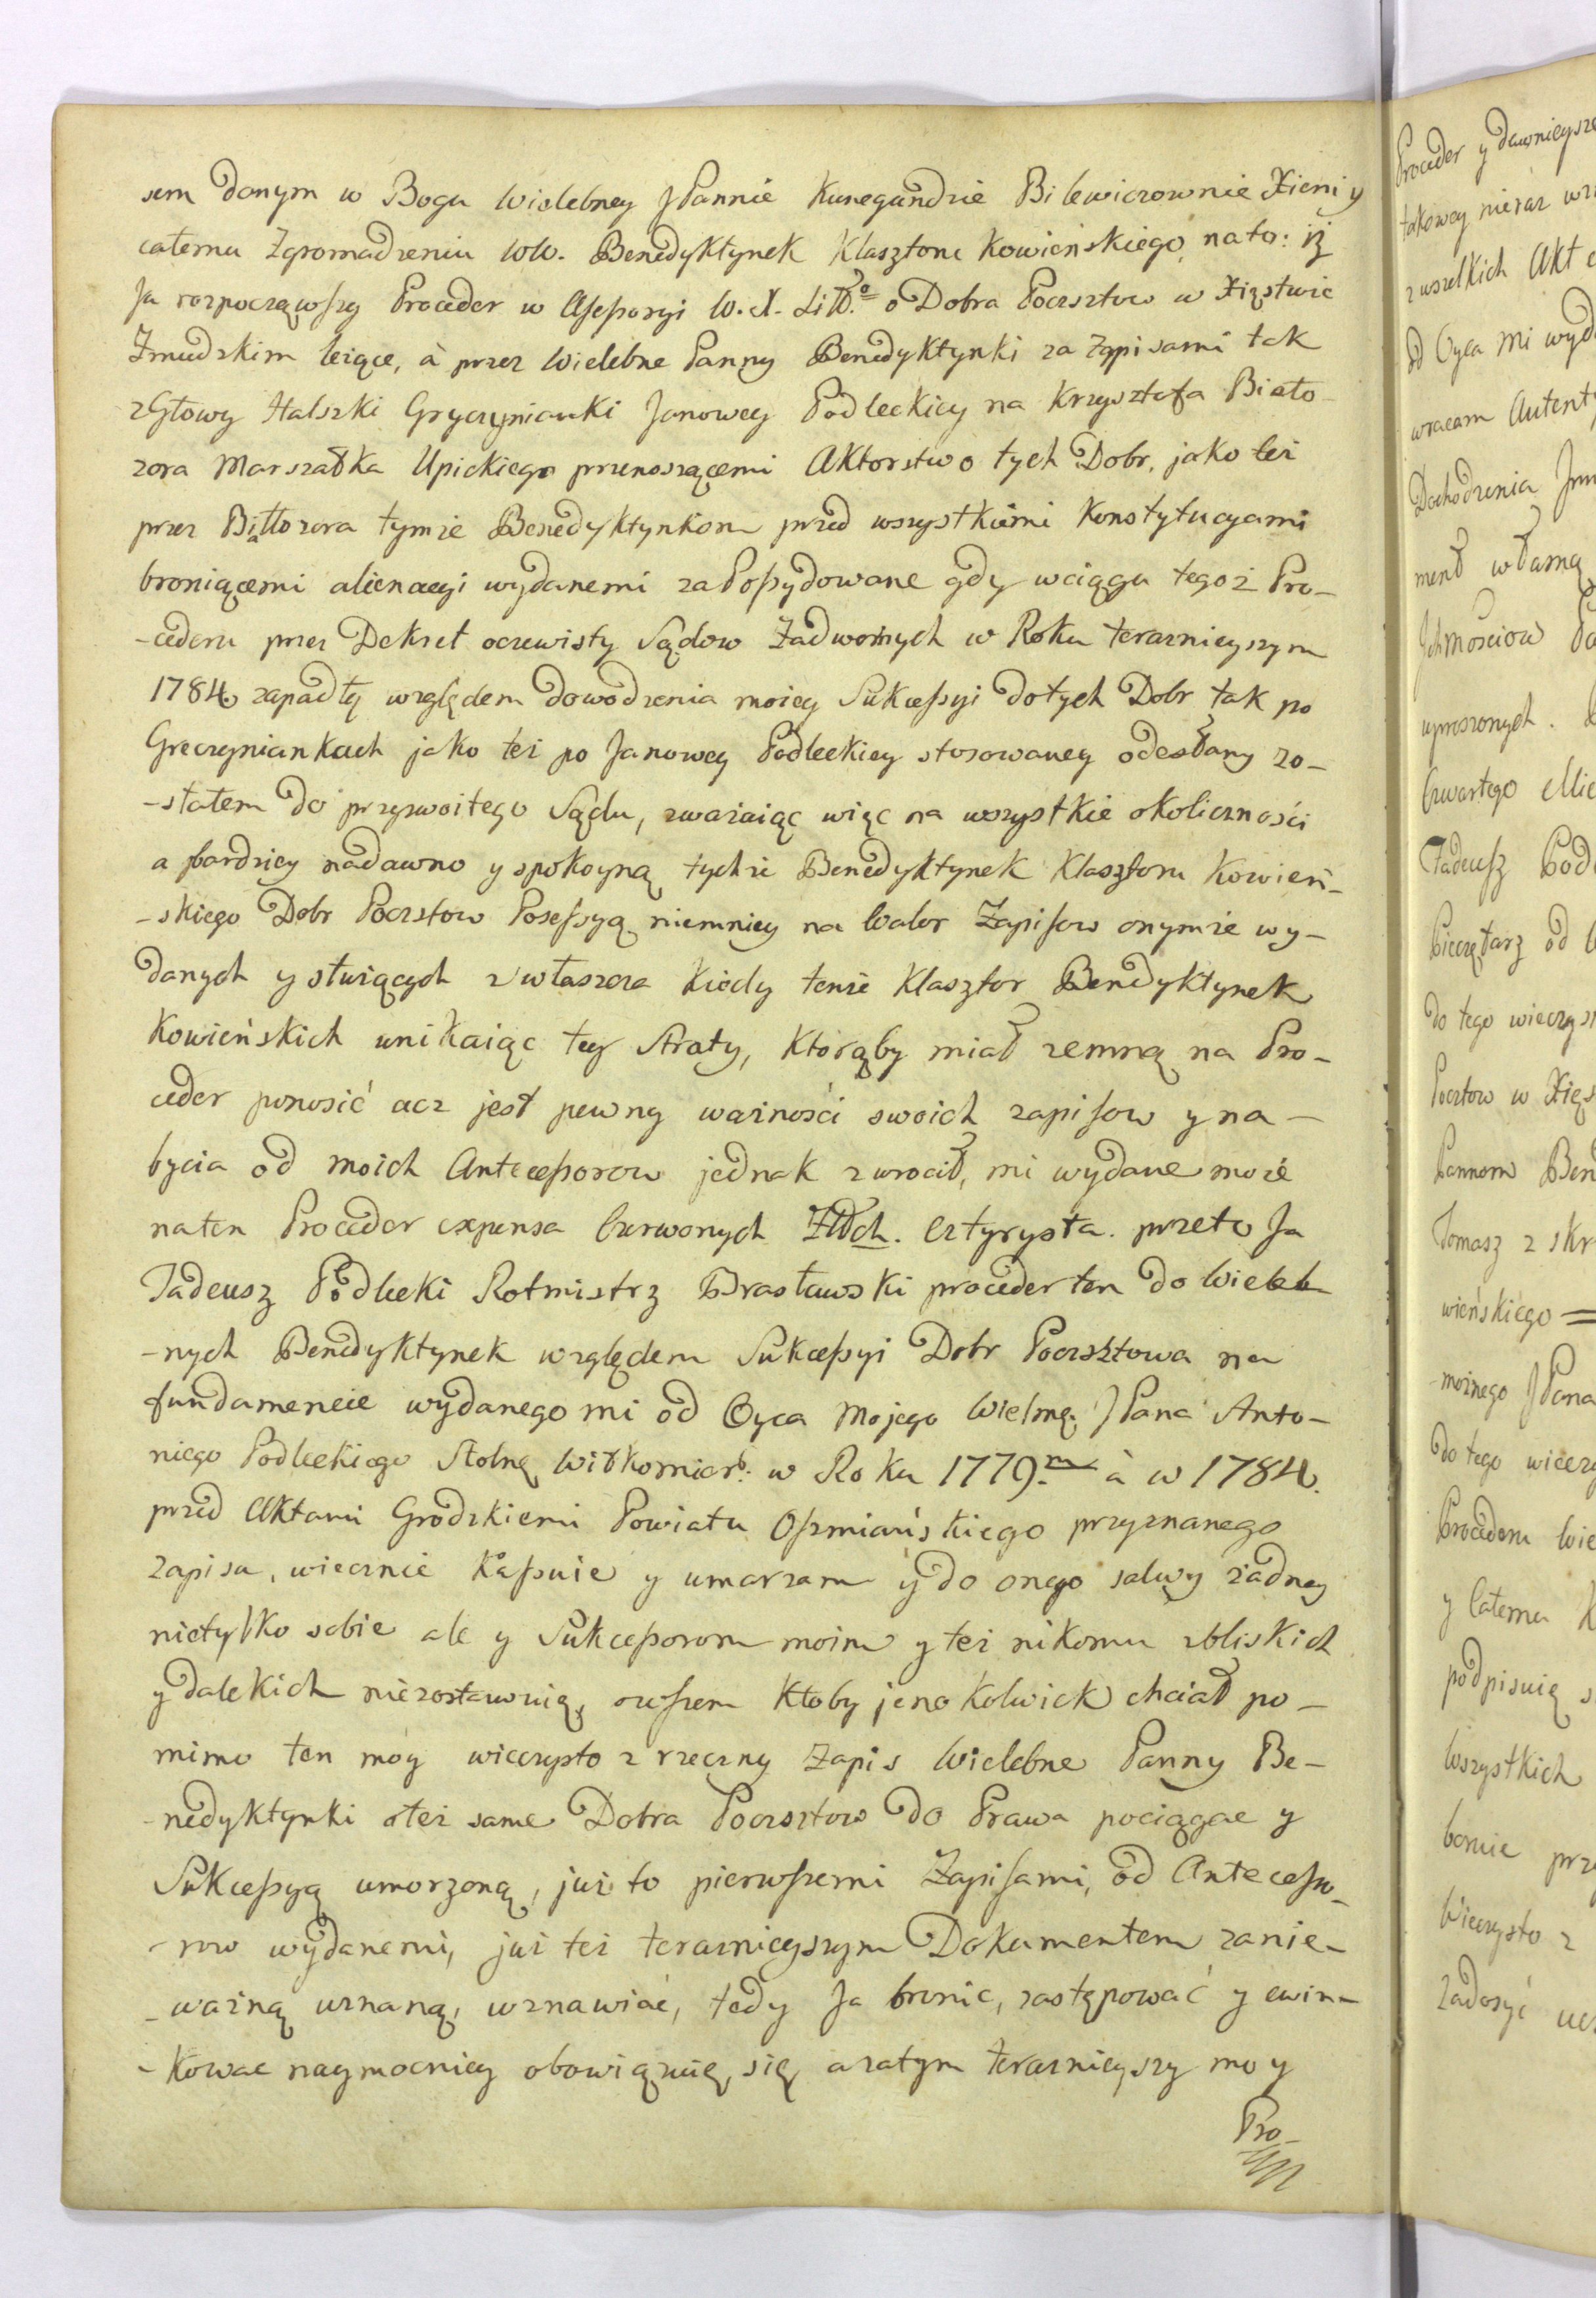 sem danym w Bogu Wielebney JPannie Kunegundzie Bilewiczownie Xieni y
całemu Zgromadzeniu WW. Benedyktynek Klasztoru Kowieńskiego, na to: iż
Ja rozpocząwszy Proceder w Assessoryi W. X. Litt.º o Dobra Poczsztow w Xięstwie
Zmudzkim leżące, à przez Wielebne Panny Benedyktynki za zapisami tak
z Głowy Halszki Gryczynianki Janowey Podleckiey na Krzysztofa Biało
zora Marszałka Upickiego przenoszącemi Aktorstwo tych Dobr, jako też
przez Białłozora tymże Benedyktynkom przed wszystkiemi Konstytucyami
broniącemi alienacyi wydanemi zaPossydowane gdy wciągu tegoż Pro-
-cederu przez Dekret oczewisty Sądow Zadwornych w Roku teraznieyszym
1784 zapadły względem dowodzenia moiey Sukcessyi do tych Dobr tak po
Greczyniankach jako też po Janowey Podleckiey stosowaney odesłany zo-
-stałem do przyzwoitego Sądu, zważaiąc więc na wszystkie okoliczności
a bardziey nadawno y spokoyną tychże Benedyktynek Klasztoru Kowień-
-skiego Dobr Poczstow Posessyą niemniey na Walor Zapisow onymże wy-
danych y służących zwłaszcza kiedy tenże Klasztor Benedyktynek
Kowieńskich unikaiąc tey straty, ktorąby miał zemną na Pro-
ceder ponosić acz jest pewny ważności swoich zapisow y na-
bycia od moich Antecessorow jednak zwrocił, mi wydane moie
na ten Proceder expensa Czerwonych Złłch. Cztyrysta. przeto Ja
Tadeusz Podlecki Rotmistrz Brasławski proceder ten do Wieleb
-nych Benedyktynek względem Sukcessyi Dobr Poczsztowa na
fundamencie wydanego mi od Oyca Mojego Wielmo. JPana Anto-
niego Podleckiego Stolno Wiłkomiers. w Roku 1779.m à w 1784.
przed Aktami Grodzkiemi Powiatu Oszmiańskiego przyznanego
zapisu, wiecznie Kassuie y umarzam y do onego salwy żadney
nietylko sobie ale y Sukcessorom moim y też nikomu zbliskich
y dalekich niezostawuię, owszem Ktoby jeno kolwiek chciał po-
mimo ten moy wieczysto zrzeczny Zapis Wielebne Panny Be-
-nedyktynki oteż same Dobra Poczsztow do Prawa pociągac y
Sukcessyą umorzoną, już to pierwszemi Zapisami, od Antecesso-
-row wydanemi, już też teraznieyszym Dokumentem zanie-
-ważną uznaną, wznawiać, tedy Ja bronic, zastępować y ewin-
-kowac naymocniey obowiązuię się, a zatym teraznieyszy moy
Pro-
Proceder y dawnieysze
takowey nieraz
z wszelkich Akt
od Oyca mi wyd
wracam Autenty
Dochodzenia
ment własną
Ichmościow
uproszonych.
Czwartego Mie
Tadeusz Podl
Pieczętarz od
do tego wieczys
Pocztow w Xięs
Pannom Ben
Tomasz z skr
wieńskiego =
-możnego JPana
do tego wieczy
Procederu Wie
y Całemu K
podpisuię s
Wszystkich
bonie prze
Wieczysto z
Zadosyć ucz